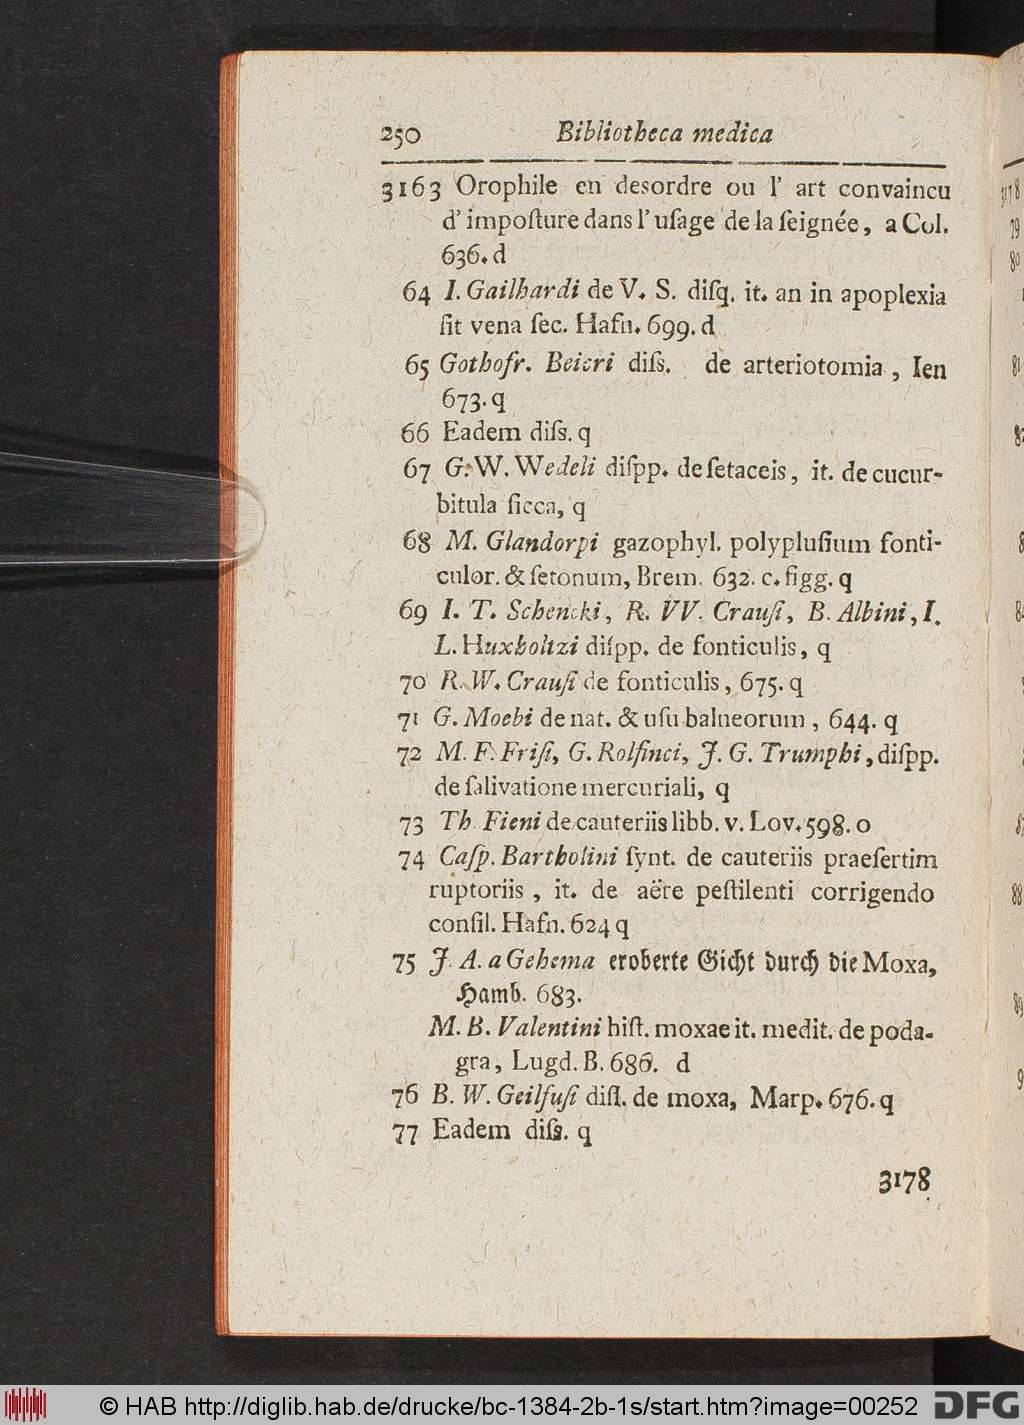 250 Bibliotheca medica
3163 Orophile en desordre ou l' art convaincu
d' impoſture dans l' uſage de la ſeignée, a Col.
636. d
64 I. Gailhardi de V. S. diſq. it. an in apoplexia
ſit vena ſec. Hafn. 699. d
65 Gothofr. Beieri diſſ. de arteriotomia, Ien
673. q
66 Eadem diſſ. q
67 G. W. Wedeli diſpp. de ſetaceis, it. de cucur-
bitula ſicca, q
68 M. Glandorpi gazophyl. polypluſium fonti-
culor. & ſetonum, Brem. 632. c. figg. q
69 I. T. Schencki, R. VV. Crauſi, B. Albini, I.
L. Huxholtzi diſpp. de fonticulis, q
70 R. W. Crauſi de fonticulis, 675. q
71 G. Moebi de nat. & uſu balneorum, 644. q
72 M. F. Friſi, G. Rolfinci, J. G. Trumphi, diſpp.
de ſalivatione mercuriali, q
73 Th. Fieni de cauteriis libb. v. Lov. 598. o
74 Caſp. Bartholini ſynt. de cauteriis praeſertim
ruptoriis, it. de aëre peſtilenti corrigendo
conſil. Hafn. 624 q
75 J. A. a Gehema eroberte Gicht durch die Moxa,
Hamb. 683.
M. B. Valentini hiſt. moxae it. medit. de poda-
gra, Lugd. B. 686. d
76 B. W. Geilfuſi diſſ. de moxa, Marp. 676. q
77 Eadem diſſ. q
3178
3178
79
80
81
82
87
88
89
© HAB http://diglib.hab.de/drucke/bc-1384-2b-1s/start.htm?image=00252
DFG